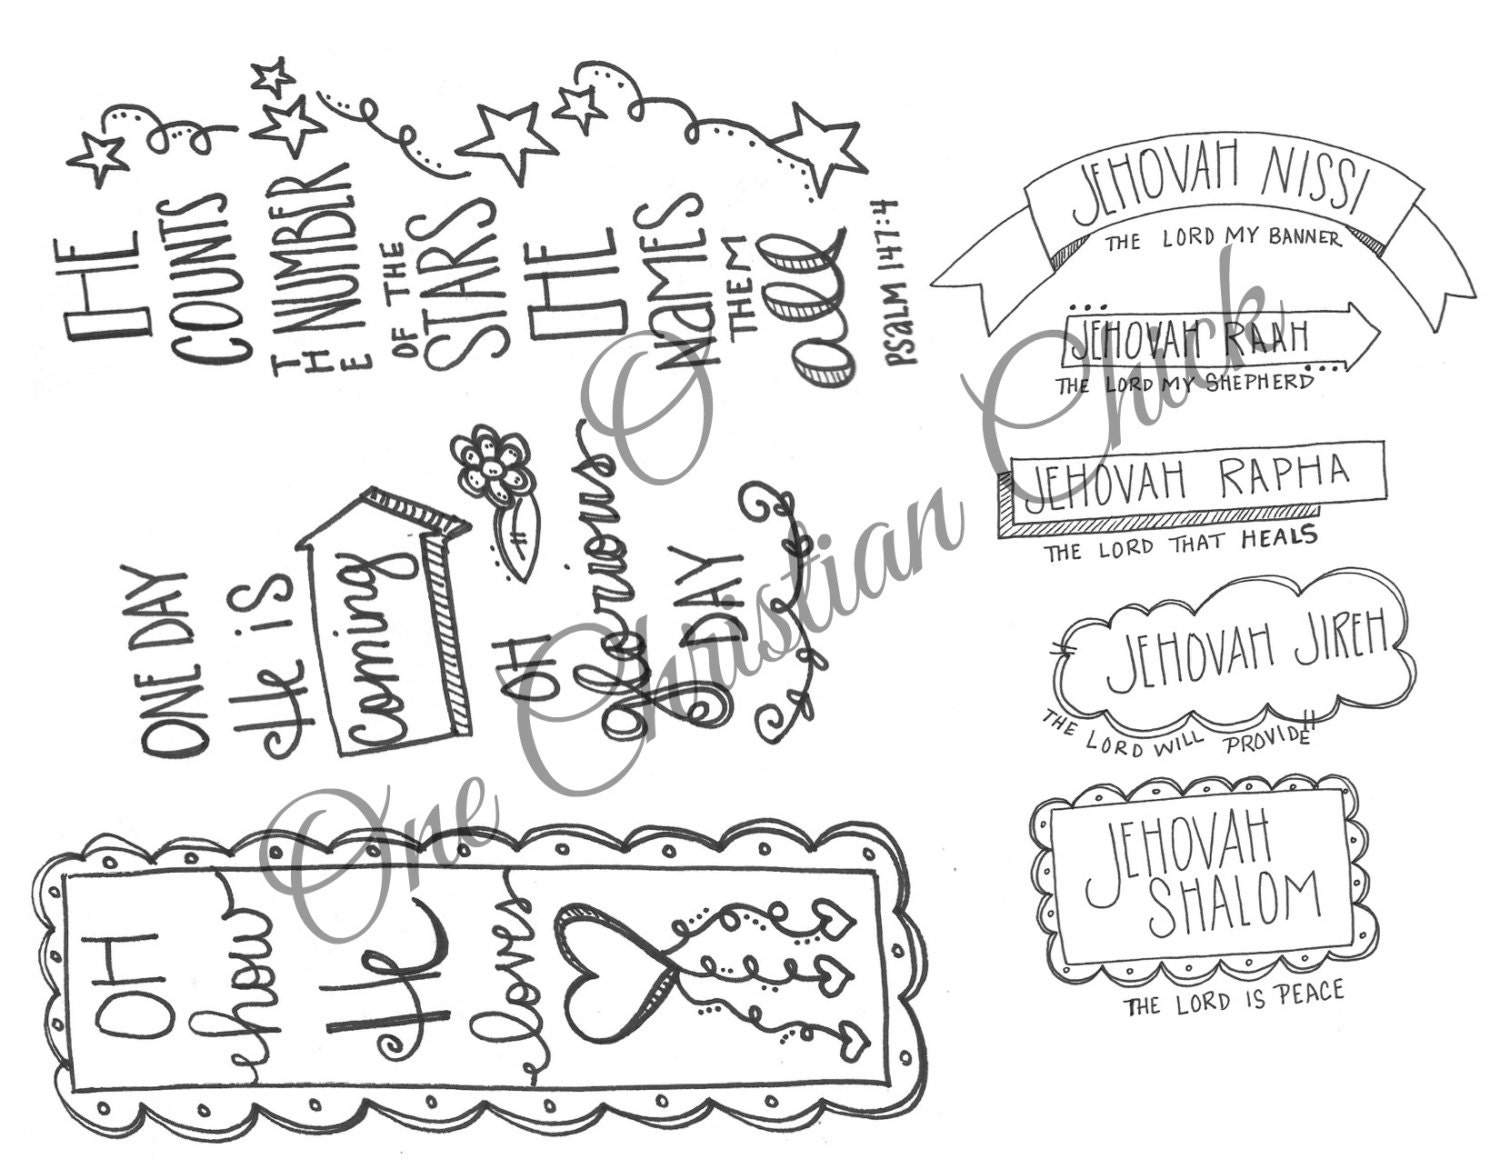 HE
COUNTS
THE NUMBER
OF THE
STARS
HE
NAMES
THEM
all
PSALM 147:4
ONE DAY
He iS
Coming
OH
glorious
DAY
OH
how
He
loves
JEHOVAH NISSI
THE LORD MY BANNER
JEHOVAH RAAH
THE LORD MY SHEPHERD
JEHOVAH RAPHA
THE LORD THAT HEALS
JEHOVAH JIREH
THE LORD WILL PROVIDE
JEHOVAH
SHALOM
THE LORD IS PEACE
One O Christian Chick